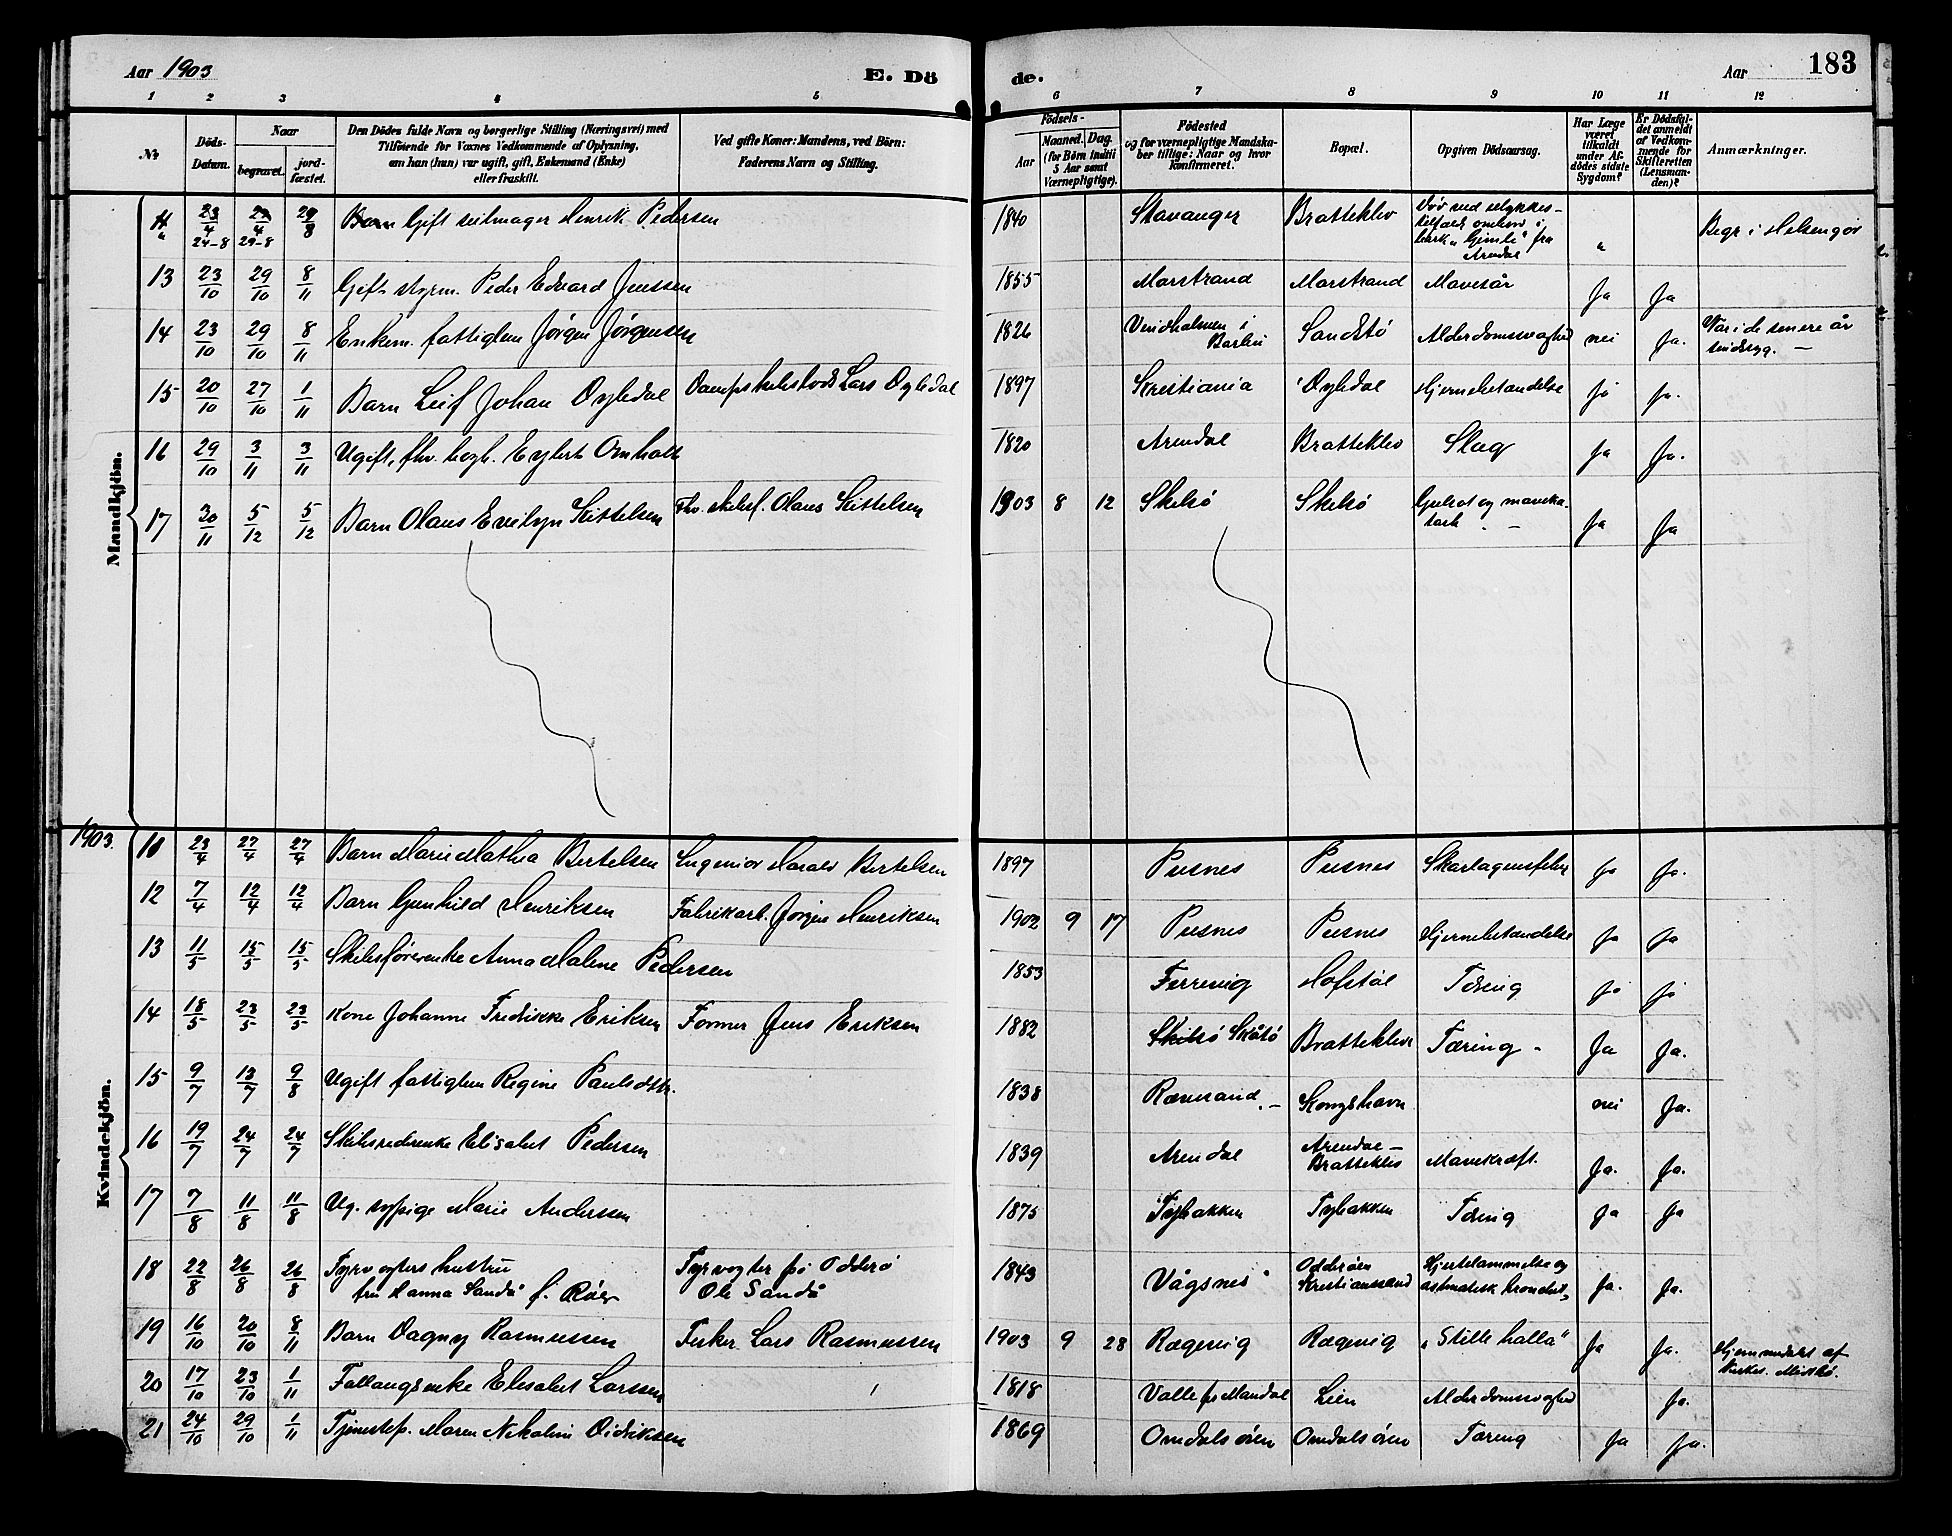 Aar 1903
E. Dö
de.
Aar
183
1 2 3 4 5 6 7 8 9 10 11 12
No
Döds-
Datum.
Naar
begravet.
jord-
fæstet.
Den Dödes fulde Navn og borgerlige Stilling (Næringsvei) med
Tilføiende for Voxnes Vedkommende af Oplysning,
om han (hun) var ugift, gift, Enkemand (Enke)
eller fraskilt.
Ved gifte Koner: Mandens, ved Börn:
Faderens Navn og Stilling.
Födsels-
Aar
Maaned. Dag.
(for Börn indtil
5 Aar samt
Værnepligtige).
Födested
og for værnepligtige Mandska-
ber tillige: Naar og hvor
konfirmeret.
Bopæl.
Opgiven Dödsaarsag.
Har Læge
været
tilkaldt
under Af-
dödes sidste
Sygdom?
Er Dödsfal-
det anmeldt
af Vedkom-
mende for
Skifteretten
(Lensman-
den)?
Anmærkninger.
Mandkjön.
23/4 24-8 29-8 Gift seilmager Henrik Pedersen 1840 Stavanger Bratteklev
bark "Gimle" fra
Arendal
Begr i Helsingör
13 23/10 29/10 8/11 Gift styrm. Peder Edvard Jenssen 1855 Marstrand Marstrand Mavesår Ja Ja
14 23/10 29/10 8/11 Enkem. fattiglem Jörgen Jörgensen 1826 Sandstö Alderdomssvaghed nei Ja. Var i de senere år
sindsyg. —
15 20/10 27/10 1/11 Barn Leif Johan Öyledal Lars Öyledal 1897 Kristiania Öyledal Hjernebetændelse ja ja.
16 29/10 3/11 3/11 Ugift, fhv. Eylert Omholt 1820 Arendal Bratteklev Slag Ja Ja.
17 30/11 5/12 5/12 Barn Olaus Kittelsen Fhv. skibsf. Olaus Kittelsen 1903 8 12 Skilsö Skilsö Ja Ja
1903.
Kvindekjön.
23/4 27/4 27/4 Barn Marie Mathea Bertelsen Ingeniør Harald Bertelsen 1897 Pusnes Pusnes Skarlagensfeber ja Ja.
12 7/4 12/4 12/4 Barn Gunhild Henriksen Fabrikarb. Jörgen Henriksen 1902 9 17 Pusnes Pusnes Hjernebetændelse Ja Ja
13 11/5 15/5 15/5 Skibsförerenke Anna Malene Pedersen 1853 Færevig Hofstöl Tæring ja ja
14 18/5 23/5 23/5 Kone Johanne Fredrikke Eriksen Former Jens Eriksen 1882 Skilsö Skåtö Bratteklev Tæring - Ja Ja.
15 9/7 13/7 9/8 Ugift fattiglem Regine Paulsdtr. 1838 Rævesand. — Kongshavn nei Ja.
16 19/7 24/7 24/7 Skibsrederenke Elisabet Pedersen 1839 Arendal Arendal —
Bratteklev Mavekræft. Ja. Ja.
17 7/8 11/8 11/8 Ug. sypige Marie Anderssen 1875 Tybakken Tybakken Tæring Ja Ja
18 22/8 26/8 26/8 Fyrvogters hustru
fru Hanna Sandå f. Röer Fyrvogter på Odderö
Ole Sandå 1843 Vågsnes Odderöen
Kristianssand Hjertelammelse og
astmatisk bronchit. Ja. Ja.
19 16/10 20/10 8/11 Barn Dagny Rasmussen Fisker Lars Rasmussen 1903 9 28 Rægevig Rægevig "Stille halla" Ja Ja. Hjemmedöbt af
20 17/10 23/10 1/11 Elisabet Larssen 1818 Valle pr Mandal Lien Alderdomssvaghed Ja.
21 24/10 29/10 1/11 Tjenestep. Maren Nikoline Didriksen 1869 Omdalsören Omdalsören Tæring Ja Ja.